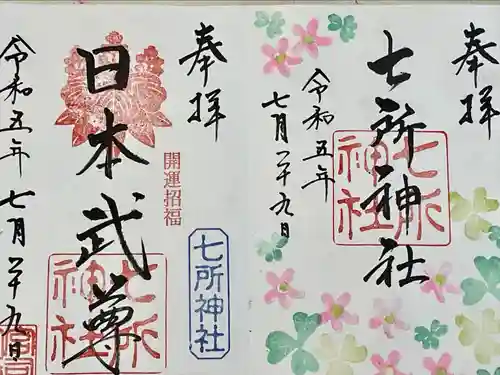 奉拝
七所神社
七所神社
令和五年
七月二十九日
奉拝
開運招福
七所神社
日本武尊
七所神社
令和五年 七月二十九日